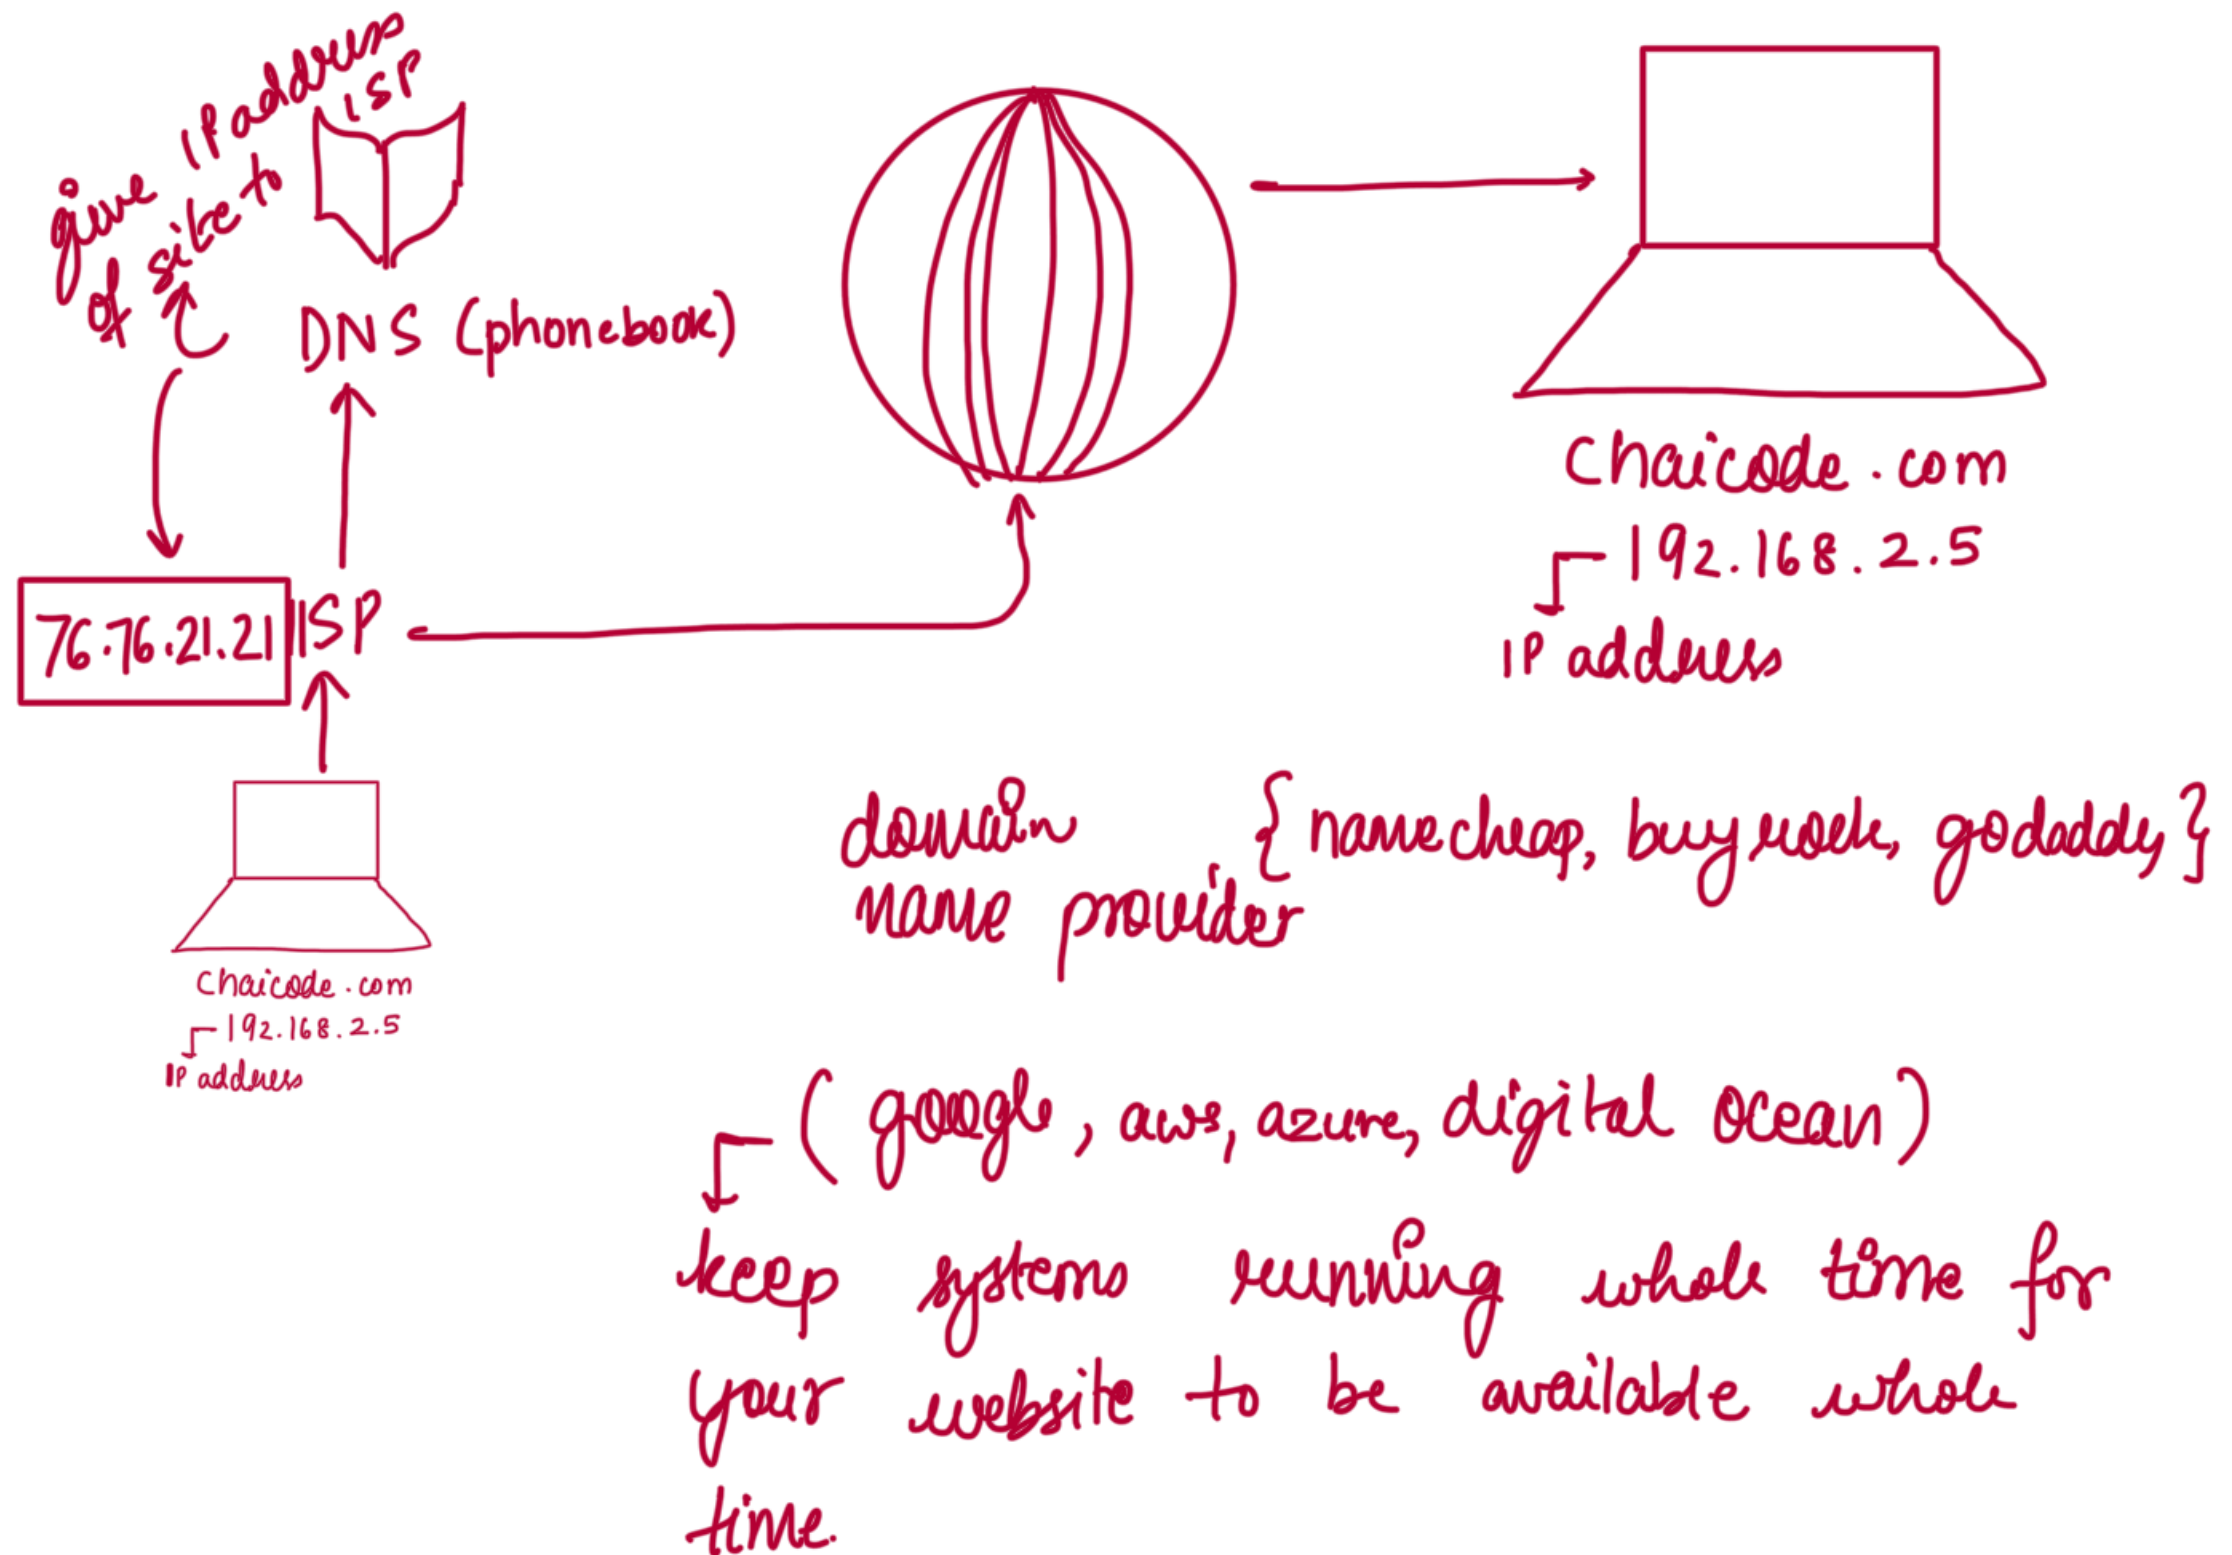 give IP address
of site to ISP
DNS (phonebook)
76.76.21.21
ISP
chaicode.com
192.168.2.5
IP address
chaicode.com
192.168.2.5
IP address
domain
name provider
{namecheap, buy rock, godaddy}
(google, aws, azure, digital ocean)
keep systems running whole time for
your website to be available whole
time.